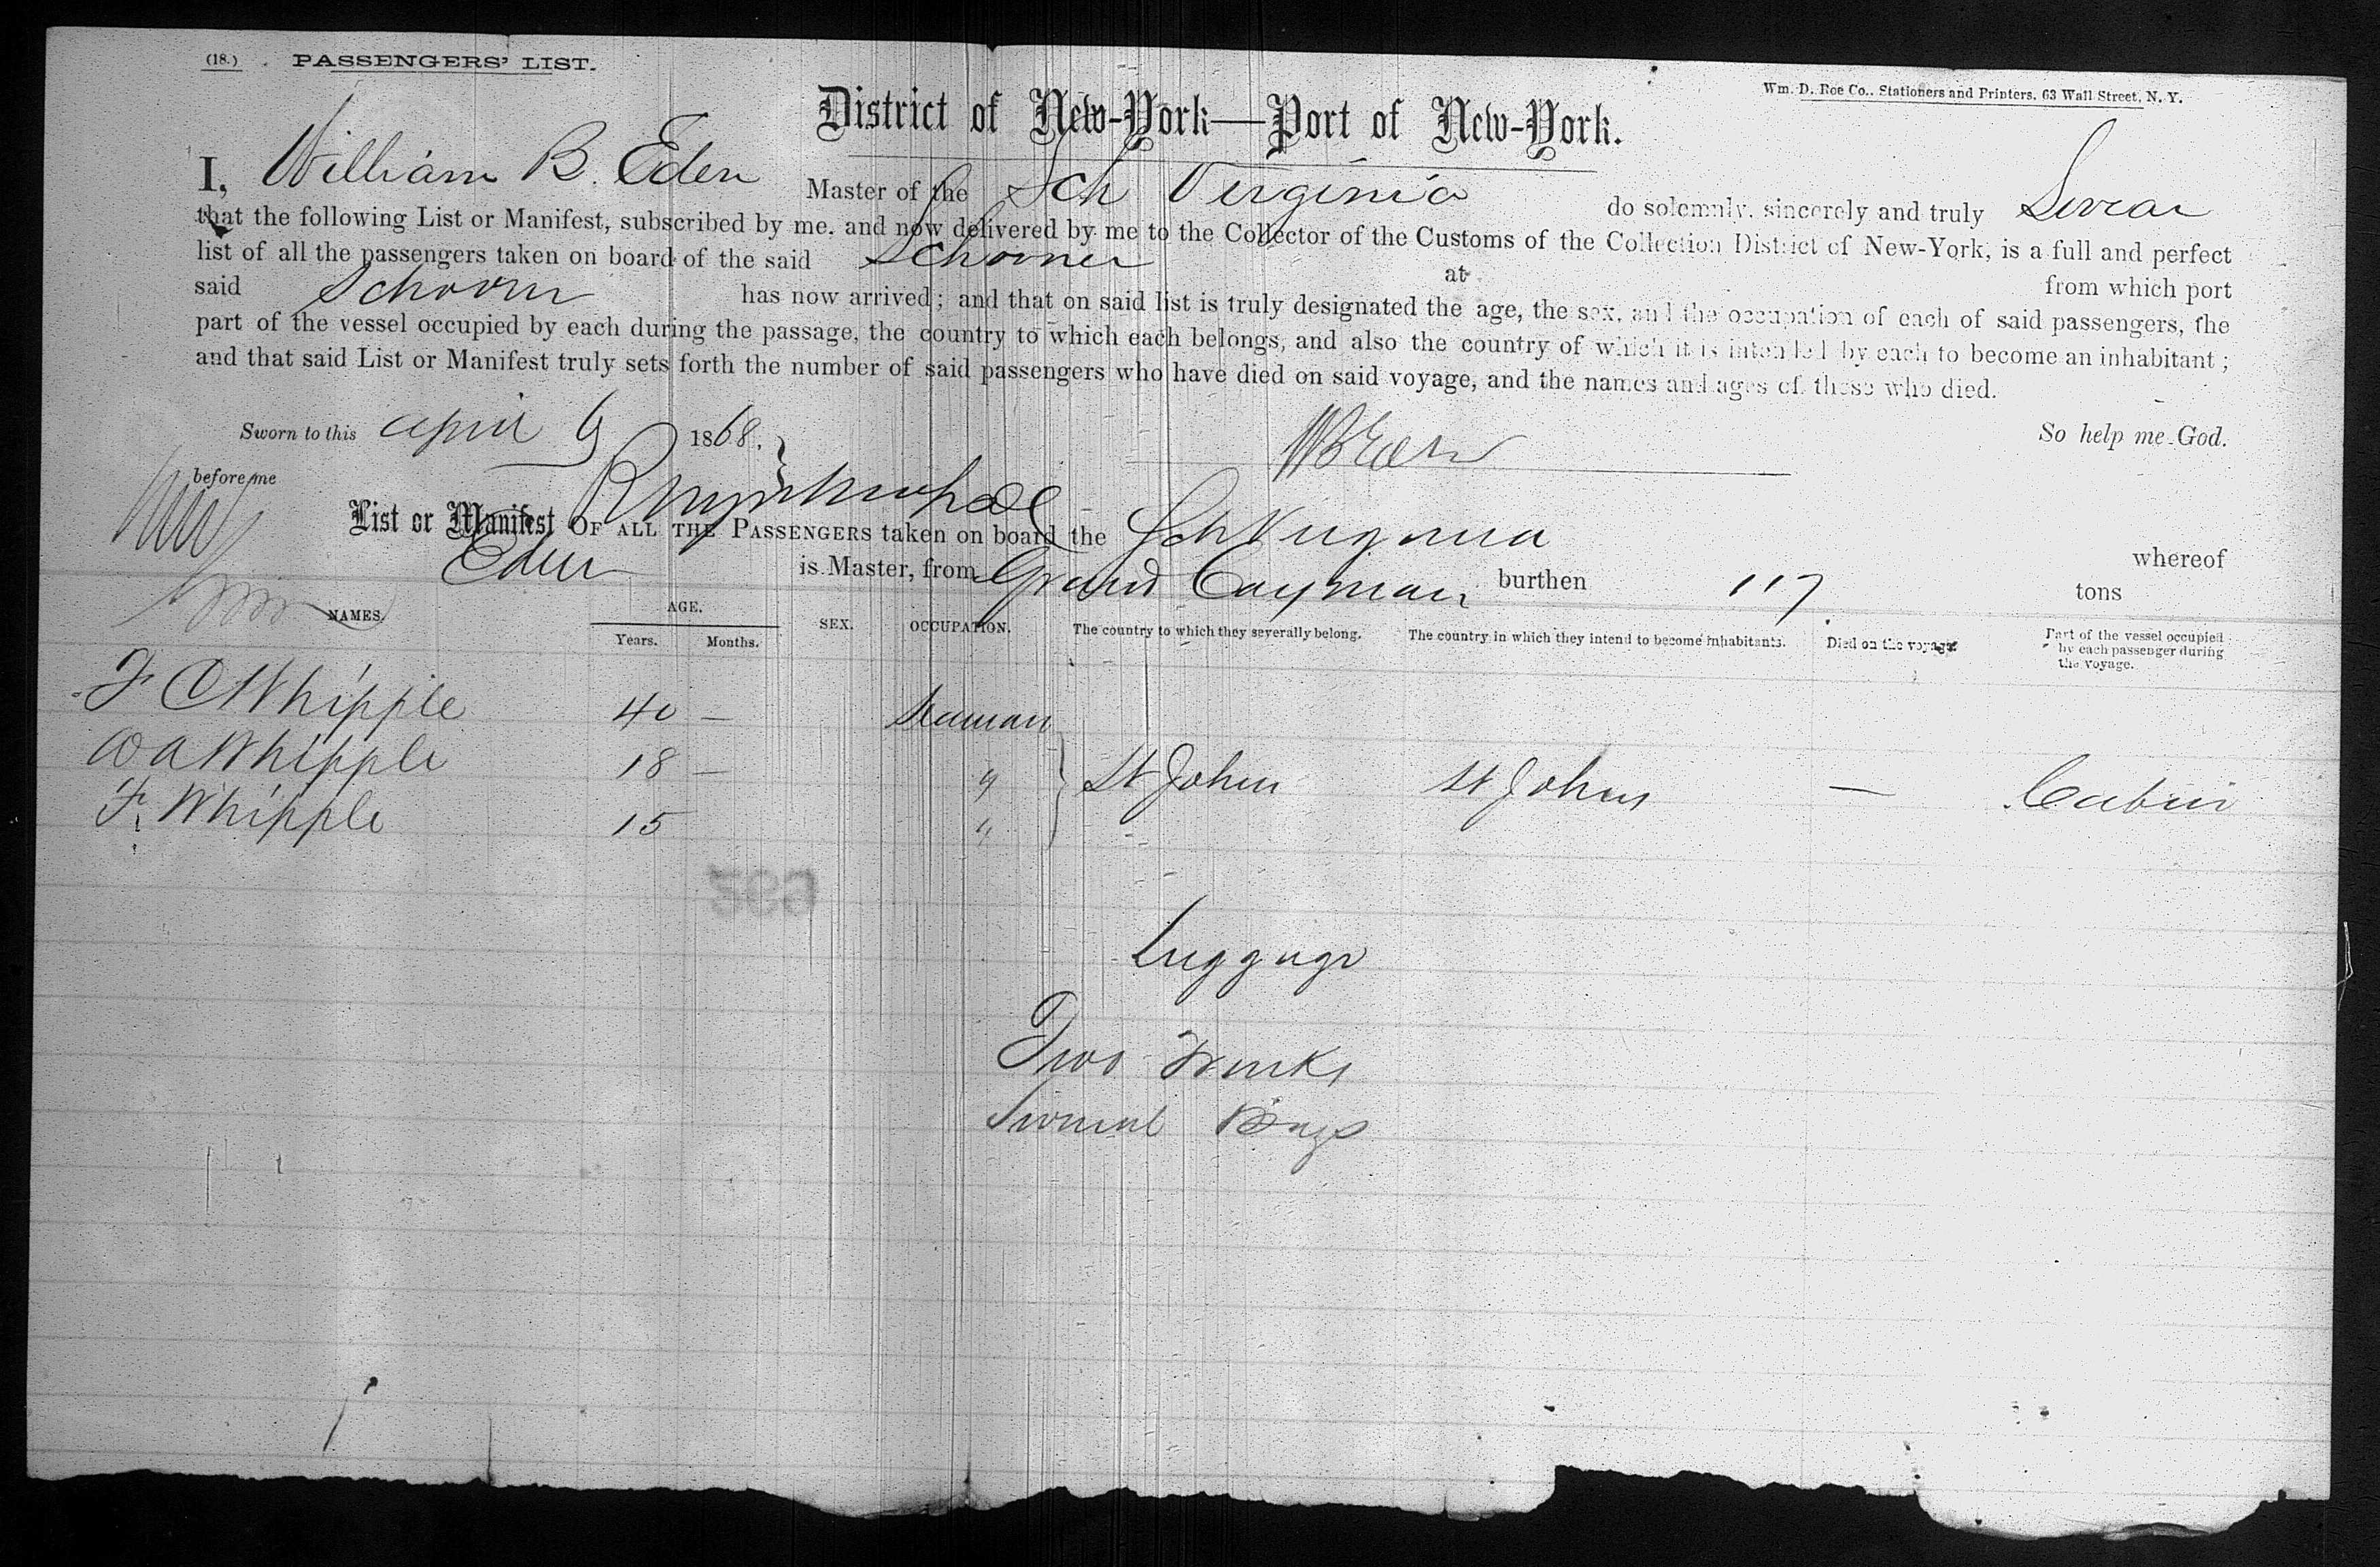 (18.) PASSENGERS' LIST.
Wm. D. Roe Co., Stationers and Printers, 63 Wall Street, N. Y.
District of New-York—Port of New-York.
I, William B. Eden Master of the Sch Virginia do solemnly, sincerely and truly Swear
that the following List or Manifest, subscribed by me, and now delivered by me to the Collector of the Customs of the Collection District of New-York, is a full and perfect
list of all the passengers taken on board of the said Schooner at from which port
said Schooner has now arrived; and that on said list is truly designated the age, the sex, and the occupation of each of said passengers, the
part of the vessel occupied by each during the passage, the country to which each belongs, and also the country of which it is intended by each to become an inhabitant;
and that said List or Manifest truly sets forth the number of said passengers who have died on said voyage, and the names and ages of those who died.
Sworn to this April 9 1868. So help me God.
before me W B Eden
List or Manifest OF ALL THE PASSENGERS taken on board the Sch Virginia whereof
Eden is Master, from Grand Cayman burthen 117 tons
NAMES. AGE. Years. Months. SEX. OCCUPATION. The country to which they severally belong. The country in which they intend to become inhabitants. Died on the voyage. Part of the vessel occupied by each passenger during the voyage.
F C Whipple 40 — Seaman
W A Whipple 18 — " St Johns St Johns — Cabin
F. Whipple 15 "
Luggage
Two Trunks
Several Bags